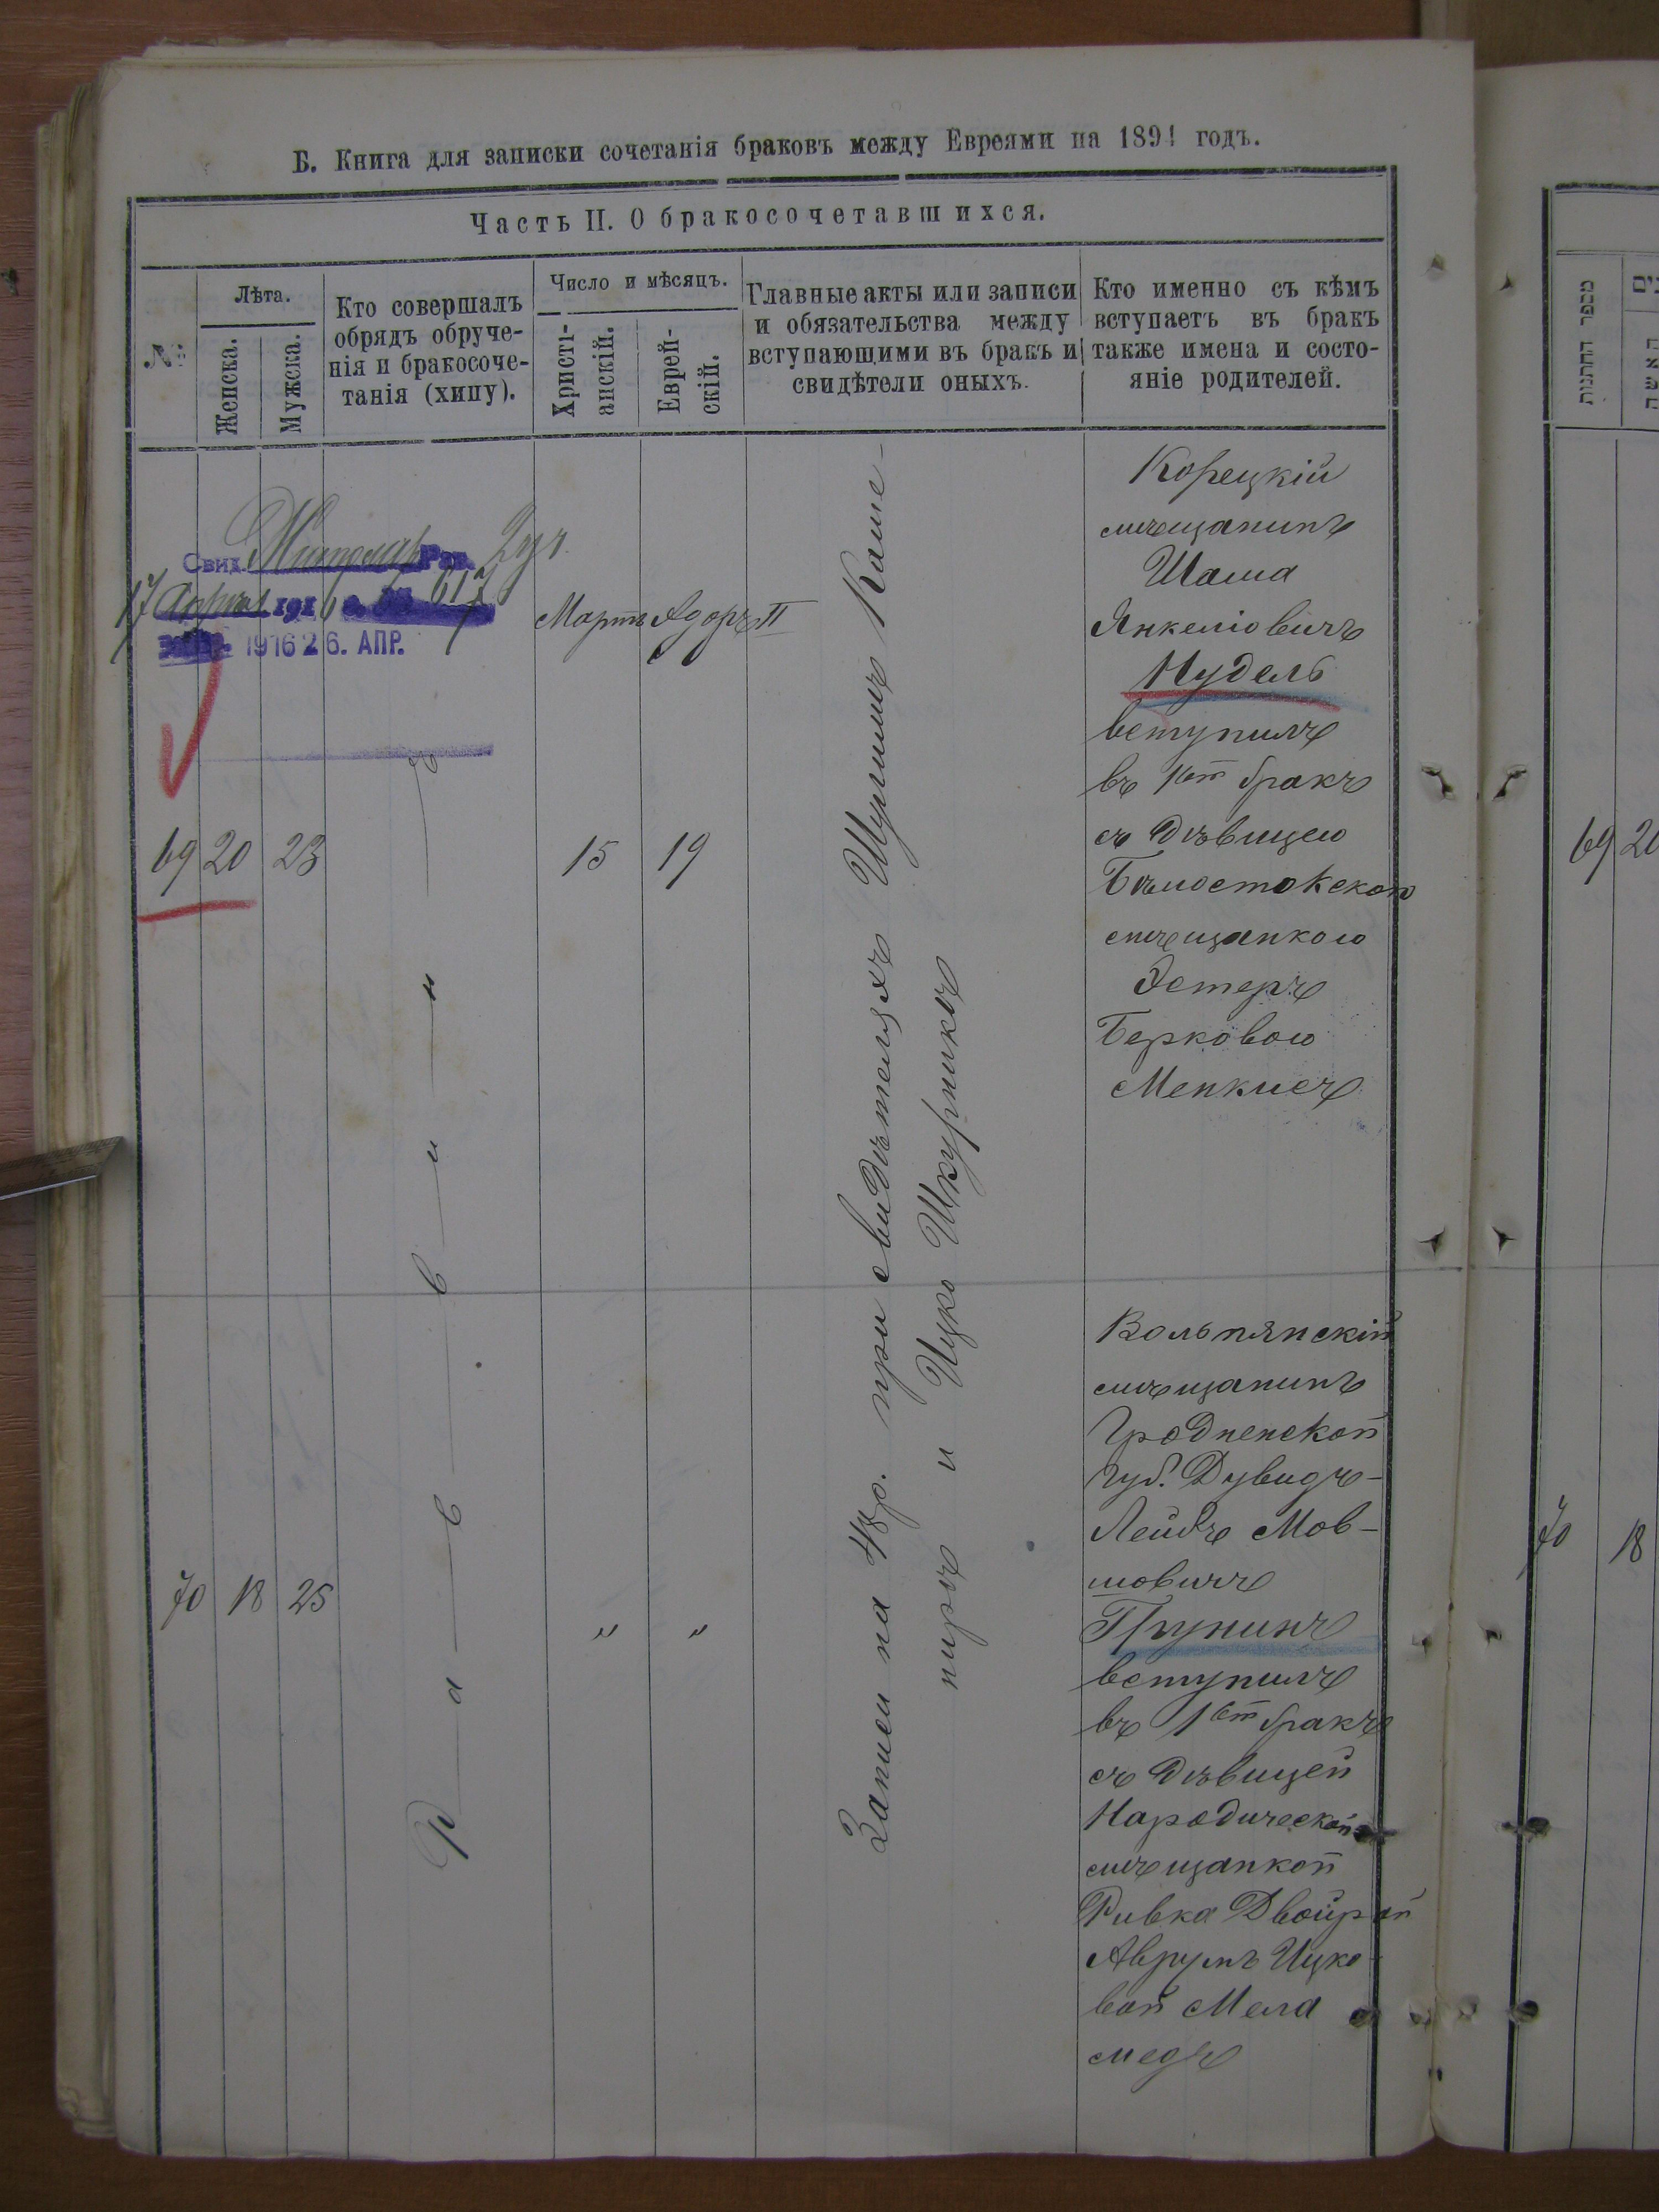 Б. Книга для записки сочетанія браковъ между Евреями на 1891 годъ.
Часть II. О бракосочетавшихся.
№
Лѣта.
Женска.
Мужска.
Кто совершалъ
обрядъ обруче-
нія и бракосоче-
танія (хипу).
Число и мѣсяцъ.
Христі-
анскій.
Еврей-
скій.
Главные акты или записи
и обязательства между
вступающими въ бракъ и
свидѣтели оныхъ.
Кто именно съ кѣмъ
вступаетъ въ бракъ
также имена и состо-
яніе родителей.
Свид. Рав.
17 Апрѣля 1916 617
1916 26. АПР.
Мартъ Адоръ II
69 20 23
15 19
Раввинъ
Записи на 48 р. при свидѣтеляхъ Шулимъ Каше-
пиръ и Ицко Шкурникъ
Корецкій
мѣщанинъ
Шама
Янкеліовичъ
Нудель
вступилъ
въ 1ый бракъ
съ дѣвицею
Бѣлостокскою
мѣщанкою
Эстеръ
Берковою
Менкисъ
70 18 25
" "
Вольпянскій
мѣщанинъ
Гродненской
губ. Дувидъ-
Лейбъ Мов-
шовичъ
вступилъ
въ 1ый бракъ
съ дѣвицей
Народической
мѣщанкой
Ривка Двойрой
Аврумъ Ицко-
вой Мела
медъ
מספר החתנות
האשה
69 20
70 18